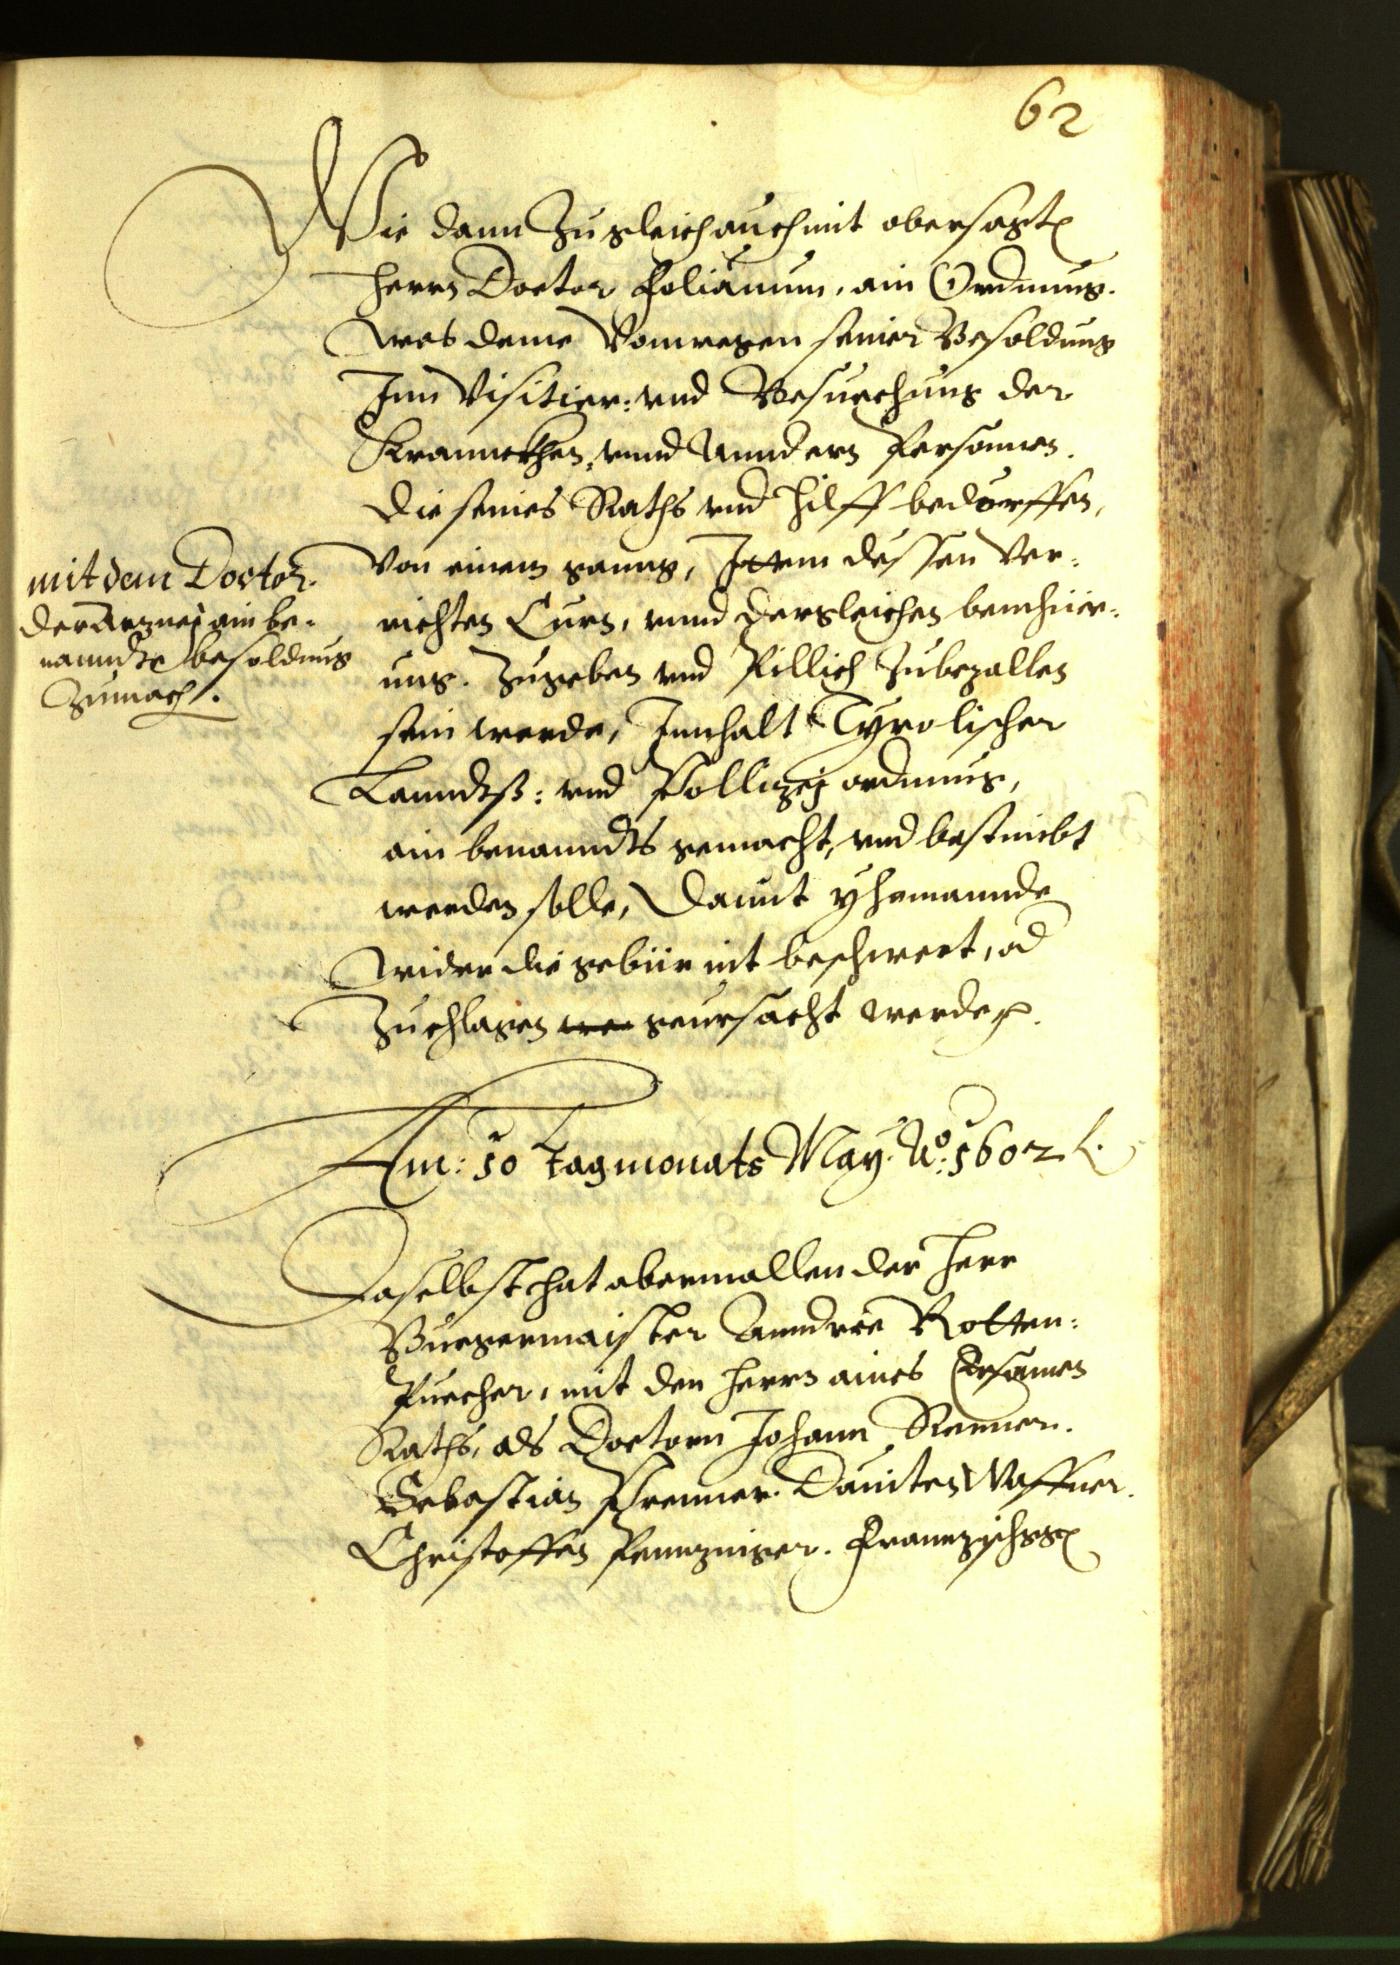 62
Wie dann zugleich auch mit obersagt
Herrn Doctor Folianum, ain Ordnung.
was deme Vonwegen seiner Besoldung
Inn Visitier: vnd Besuechung der
Krannckhen, vnnd Anndern Personnen.
die seines Raths vnd Hilff bedürffen,
von einem ganng, Jttem dessen Ver¬
richten Curn, vnnd dergleichen bemhüe¬
ung. zugeben vnd Pillich zubezallen
sein werde, Innhalt Tyrolischer
Lanndts: vnd Pollizej ordnung,
ain benanndts gemacht, vnd bestimbt
werden solle, Damit yhemannde
wider die gebür nit beschwert, od
zuchlagen geursacht werden.
mit dem Doctor
der Arznej ain be¬
nanndte besoldung
zumach.
Am: 10 Tag monats May. Ao: 1602
Daselbst hat abermallen der Herr
Burgermaister Anndree Rotten¬
Puecher, mit den Herrn aines Ersamen
Raths, als Doctorn Johann Renner.
Sebastian Prenner. Dauiten Waffner.
Christoffen Pennzinger.